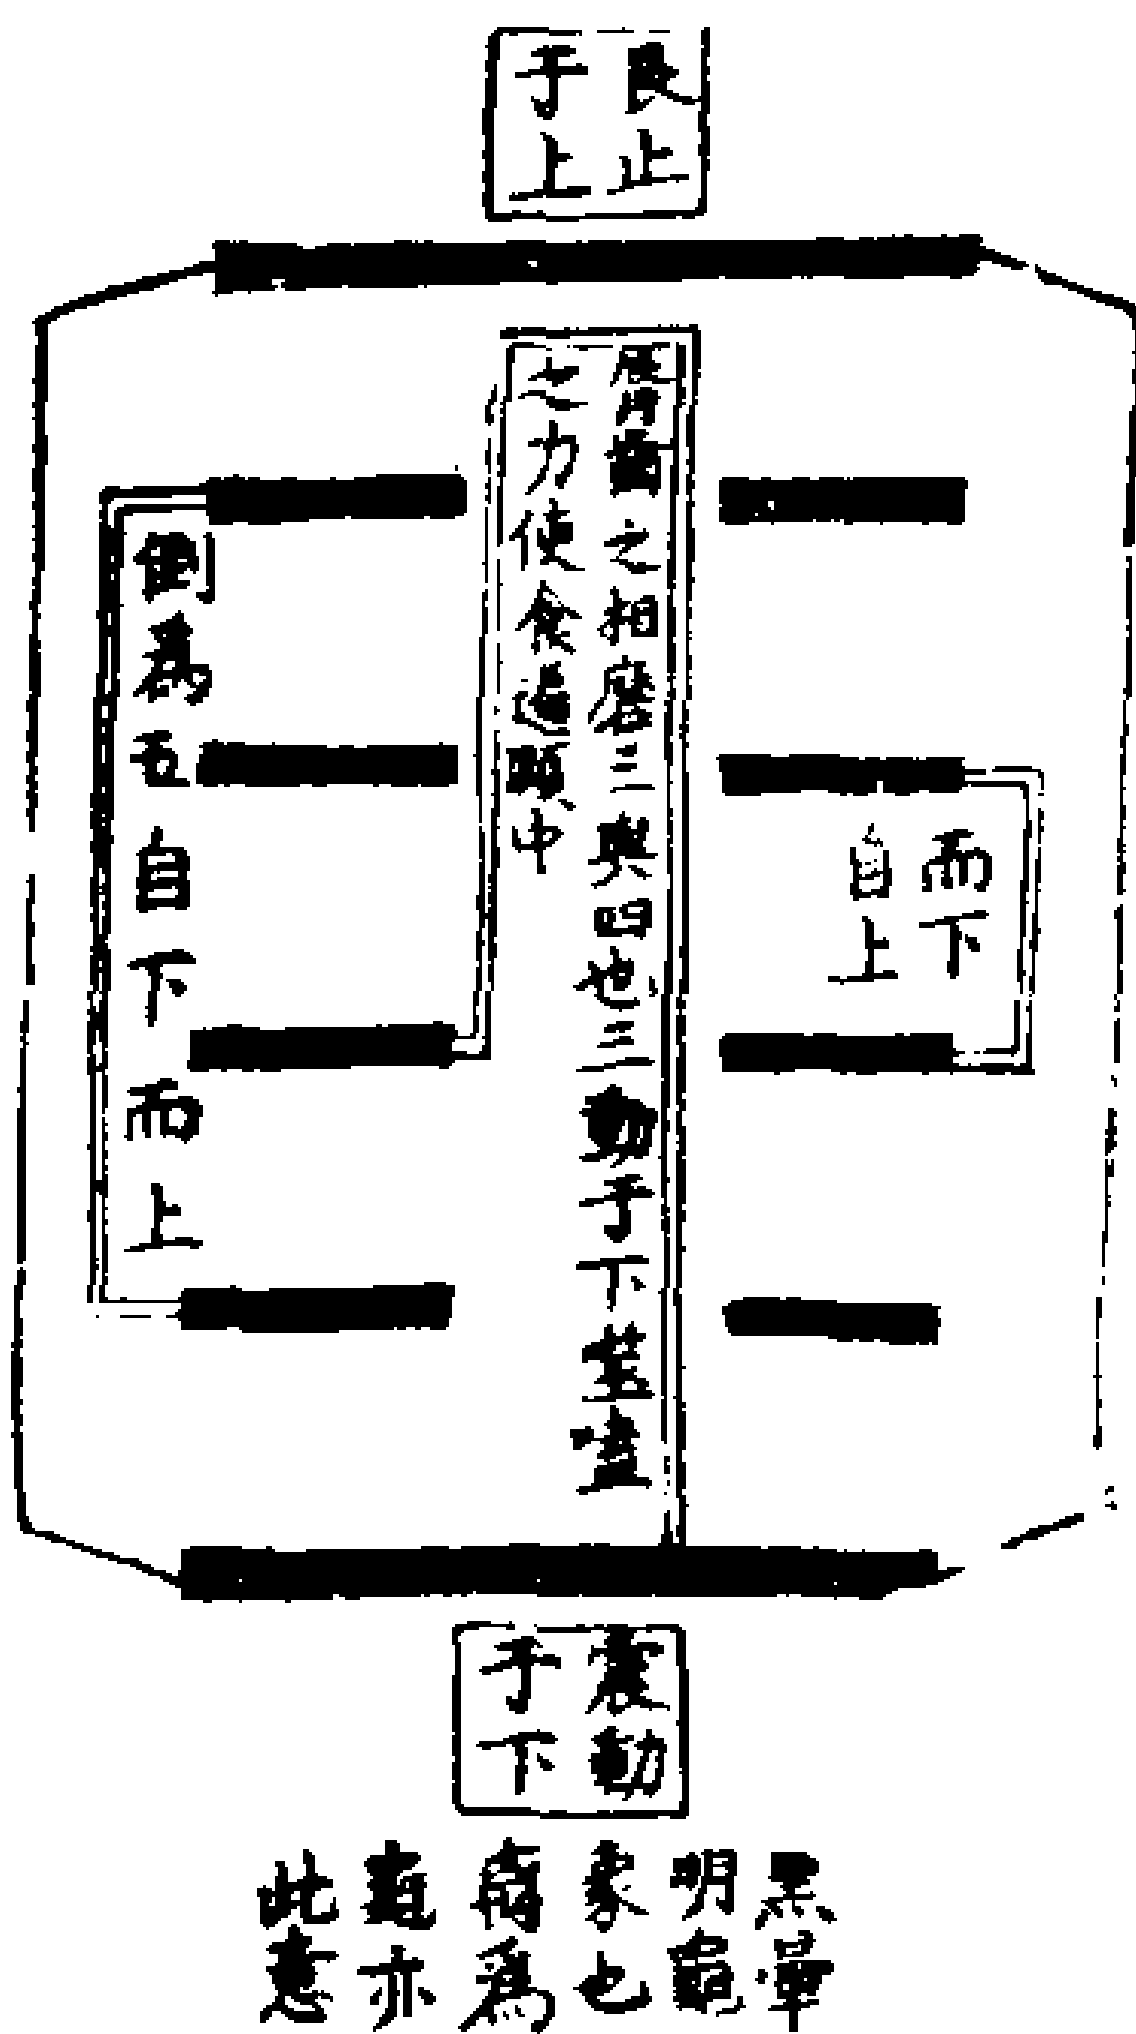 艮止
于上
脣齒之相磨三與四也三動于下噬
之力使食進頤中
而下
自上
倒爲五自下而上
震動
于下
黑暈
明龜
象也
爲
亦
此意